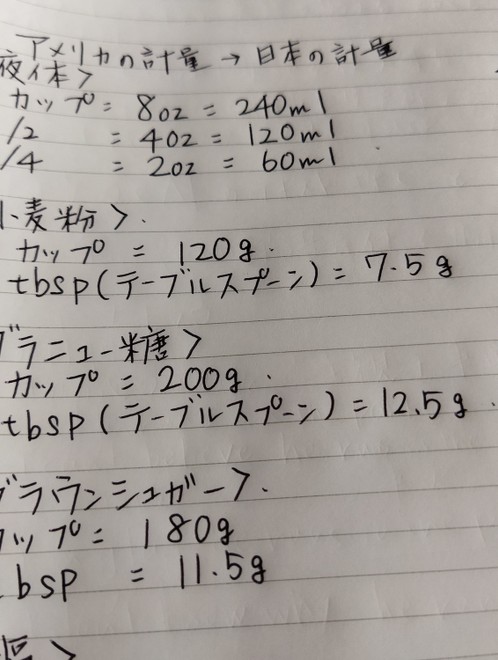 アメリカの計量 → 日本の計量
液体>
カップ = 8oz = 240ml
/2 = 4oz = 120ml
/4 = 2oz = 60ml
小麦粉>
カップ = 120g
tbsp (テーブルスプーン) = 7.5g
グラニュー糖>
カップ = 200g
tbsp (テーブルスプーン) = 12.5g
ブラウンシュガー>
カップ = 180g
tbsp = 11.5g